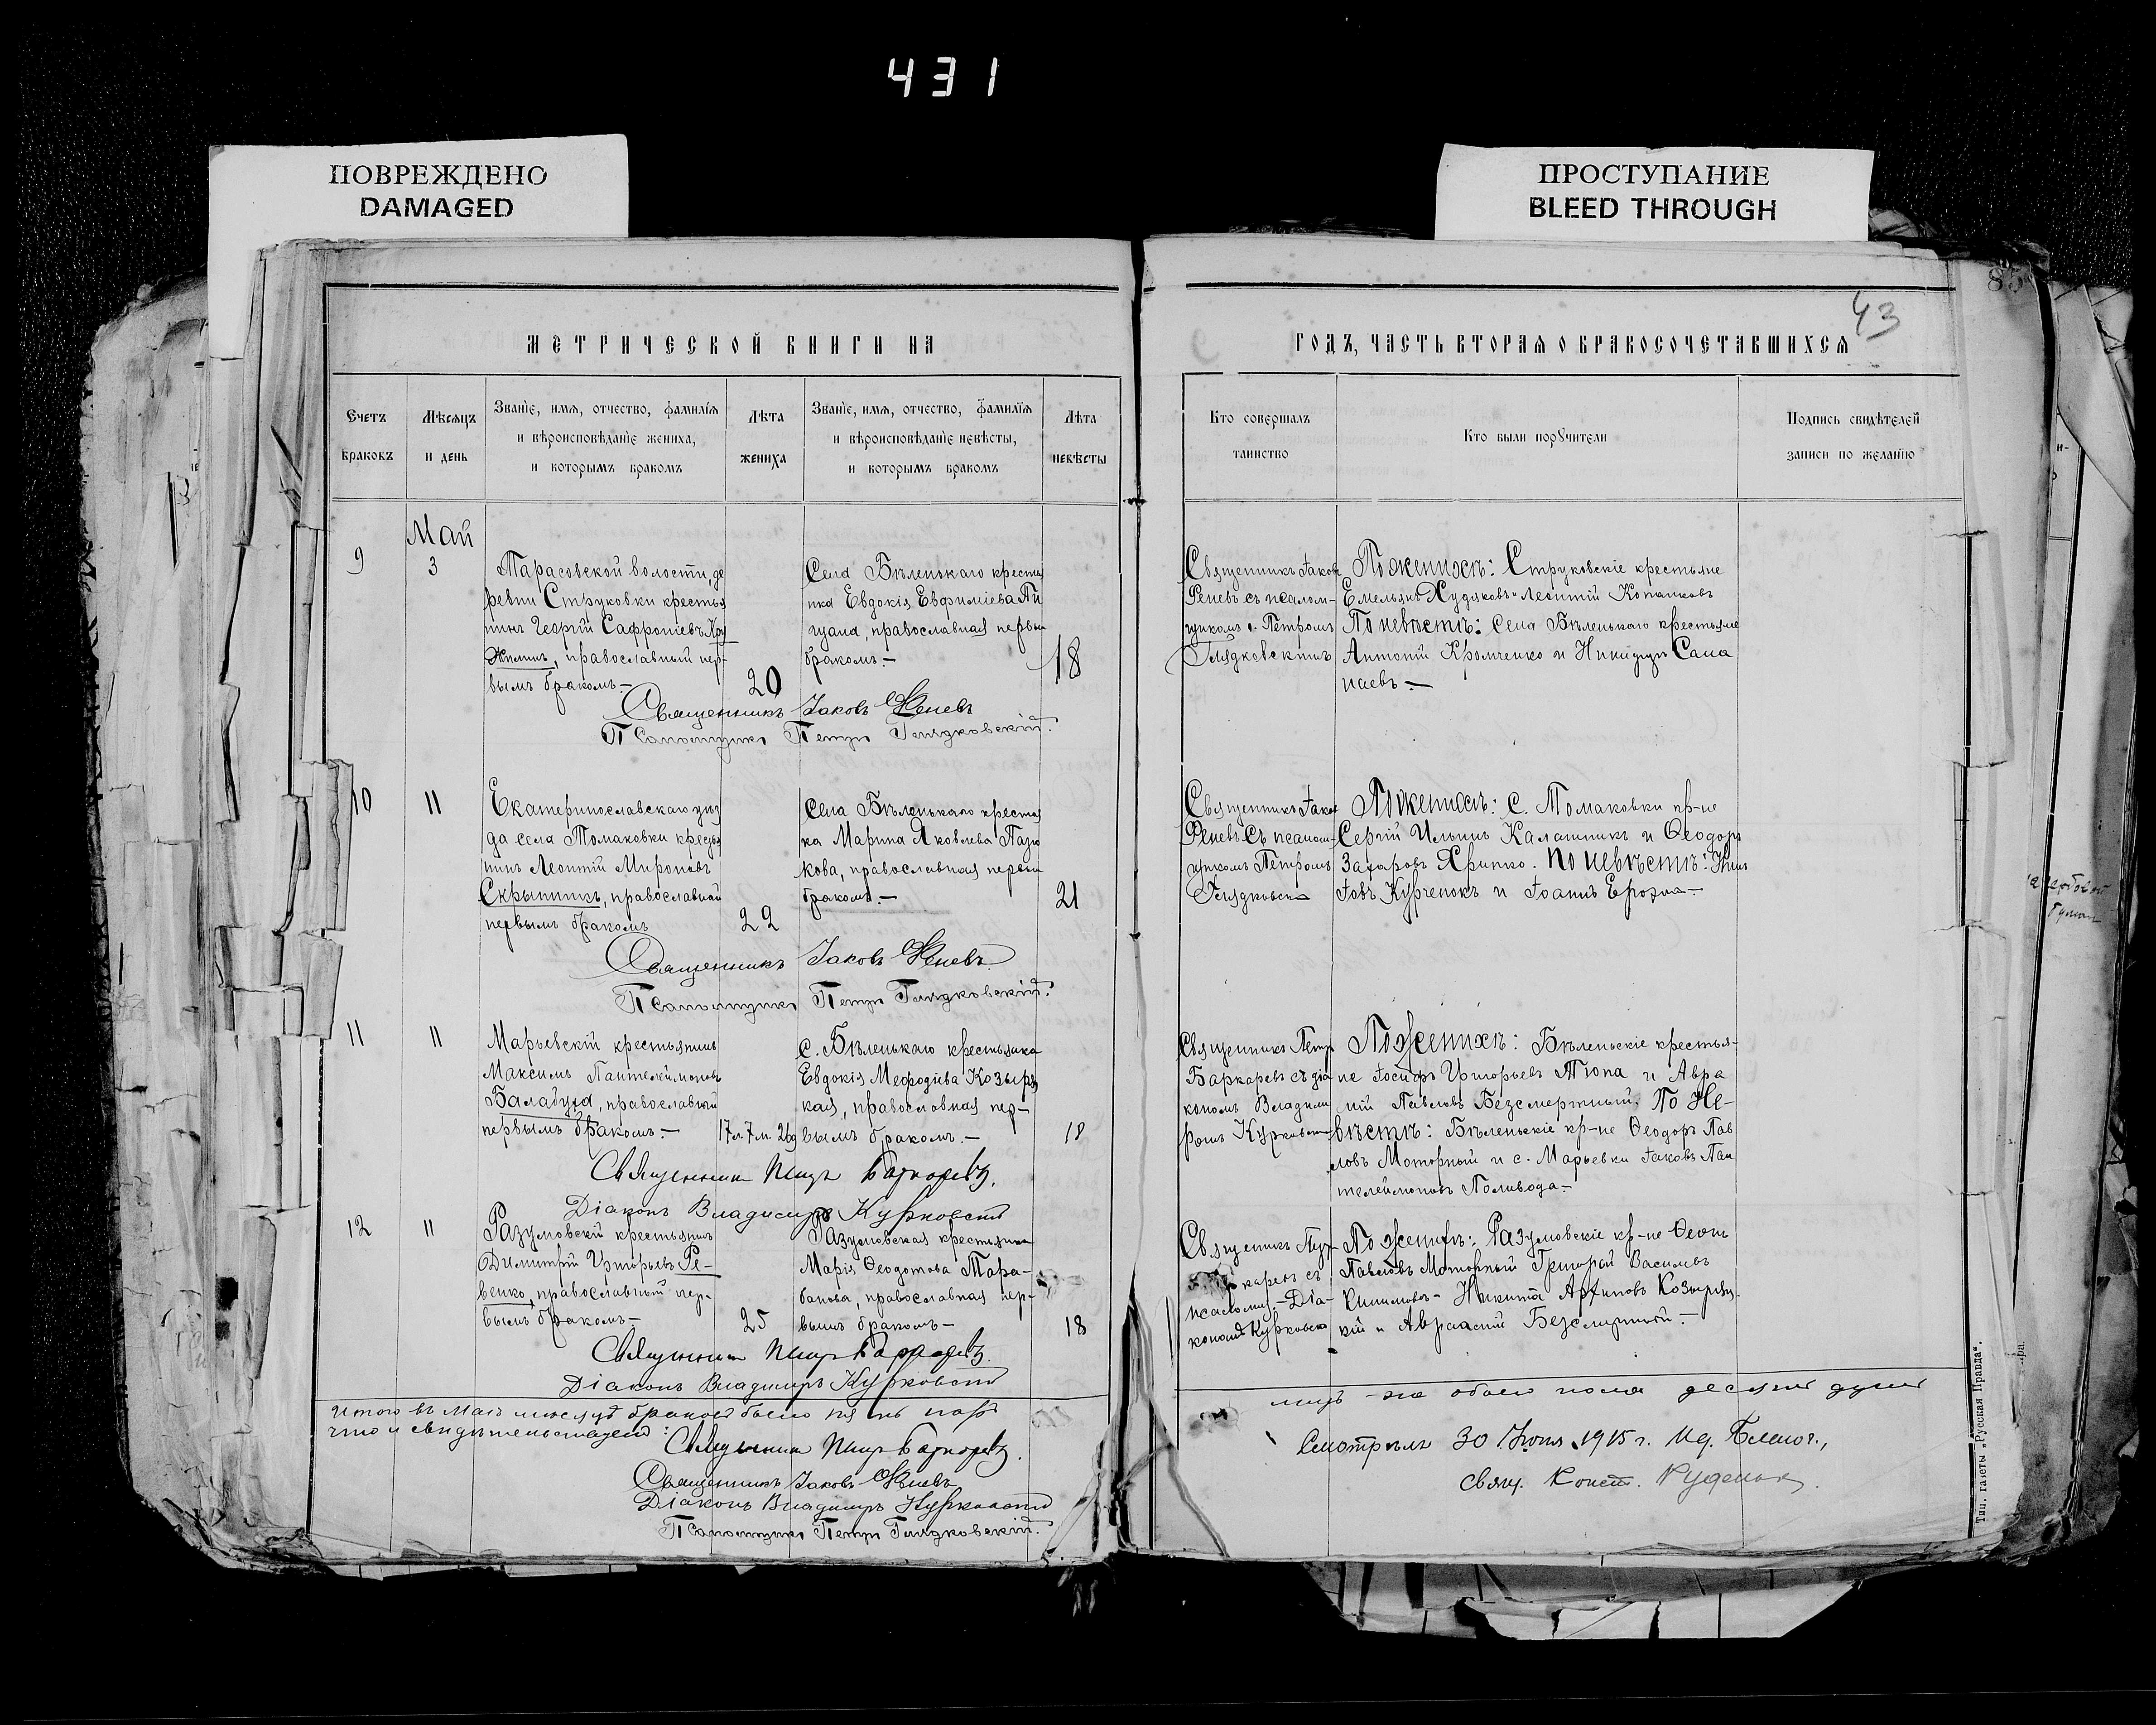 431
ПОВРЕЖДЕНО
DAMAGED
ПРОСТУПАНИЕ
BLEED THROUGH
85
43
МЕТРИЧЕСКОЙ КНИГИ НА
ГОДЪ, ЧАСТЬ ВТОРАЯ О БРАКОСОЧЕТАВШИХСЯ
Счетъ
браковъ
Мѣсяцъ
и день
Званіе, имя, отчество, фамилія
и вѣроисповѣданіе жениха,
и которымъ бракомъ
Лѣта
жениха
Званіе, имя, отчество, фамилія
и вѣроисповѣданіе невѣсты,
и которымъ бракомъ
Лѣта
невѣсты
Кто совершалъ
таинство
Кто были поручители
Подпись свидѣтелей
записи по желанію
9
Май
3
Тарасовской волости, де
ревни Струковки крестья
нинъ Георгій Сафроніевъ
православный пер-
вымъ бракомъ.—
20
Села Бѣленькаго крестья
нка Евдокія Евфиміева
православная первы
бракомъ.—
18
Священникъ Іаковъ
Реневъ съ псалом-
щикомъ Петромъ
Глядковскимъ
По женихѣ: Струковскіе крестьяне
Емельянъ Худяковъ и Леонтій Копанковъ
По невѣстѣ: Села Бѣленькаго крестьяне
Антоній Кромченко и Никифоръ Сана
наевъ.—
Священникъ Іаковъ Реневъ
Псаломщикъ Петръ Глядковскій.
10
11
Екатеринославскаго уѣз
да села Томаковки крестья
нинъ Леонтій Мироновъ
Скрынникъ, православный
первымъ бракомъ
22
Села Бѣленькаго крестья
ка Марина Яковлева Пазю
кова, православная первы
бракомъ.—
21
Священникъ Іаковъ
Реневъ съ псалом-
щикомъ Петромъ
Глядковскимъ
По женихѣ: с. Томаковки кр-не
Сергій Ильинъ Калашникъ и Ѳеодоръ
Захаровъ Хрипко. По невѣстѣ:
Іовъ Курченокъ и Іоаннъ Ерозна.—
Священникъ Іаковъ Реневъ.
Псаломщикъ Петръ Глядковскій.
11
11
Марьевскій крестьянинъ
Максимъ Пантелеимоновъ
Балабуха, православный
первымъ бракомъ.—
17л. 7м. 26д
с. Бѣленькаго крестьянка
Евдокія Меѳодіева Козырец
кая, православная пер-
вымъ бракомъ.—
18
Священникъ Петръ
Баркаревъ съ діа
кономъ Владими
ромъ Курковски
По женихѣ: Бѣленьскіе крестья-
не Іосифъ Григорьевъ Тюпа и Авра
мій Павловъ Безсмертный. По не-
вѣстѣ: Бѣленькіе кр-не Ѳеодоръ Пав
ловъ Моторный и с. Марьевки Іаковъ Пан
телеимоновъ Поливода.—
Священникъ Петръ Баркаревъ.
Діаконъ Владимиръ Курковскій
12
11
Разумовскій крестьянинъ
Димитрій Григорьевъ Ре-
венко, православный пер-
вымъ бракомъ—
25
Разумовская крестьянка
Марія Ѳеодотова Тара-
банова, православная пер-
вымъ бракомъ—
18
Священникъ Петръ
каревъ съ
псаломщ.—Діа-
кономъ Курковски
По женихѣ: Разумовскіе кр-не
Павловъ Моторный Григорій Васильевъ
Никита Архиповъ Козырец-
кій и Авраамій Безсмертный.—
Священникъ Петръ Баркаревъ.
Діаконъ Владимиръ Курковскій
Итого въ Маѣ мѣсяцѣ браковъ было
что и свидѣтельствуемъ:
лицъ обоего пола десять душъ
Священникъ Петръ Баркаревъ.
Священникъ Іаковъ Реневъ
Діаконъ Владимиръ Курковскій
Псаломщикъ Петръ Глядковскій.
Смотрѣлъ 30 Іюня 1915 г. Ид. Благоч.,
Свящ. Конст.
Тип. газеты „Русская Правда“.